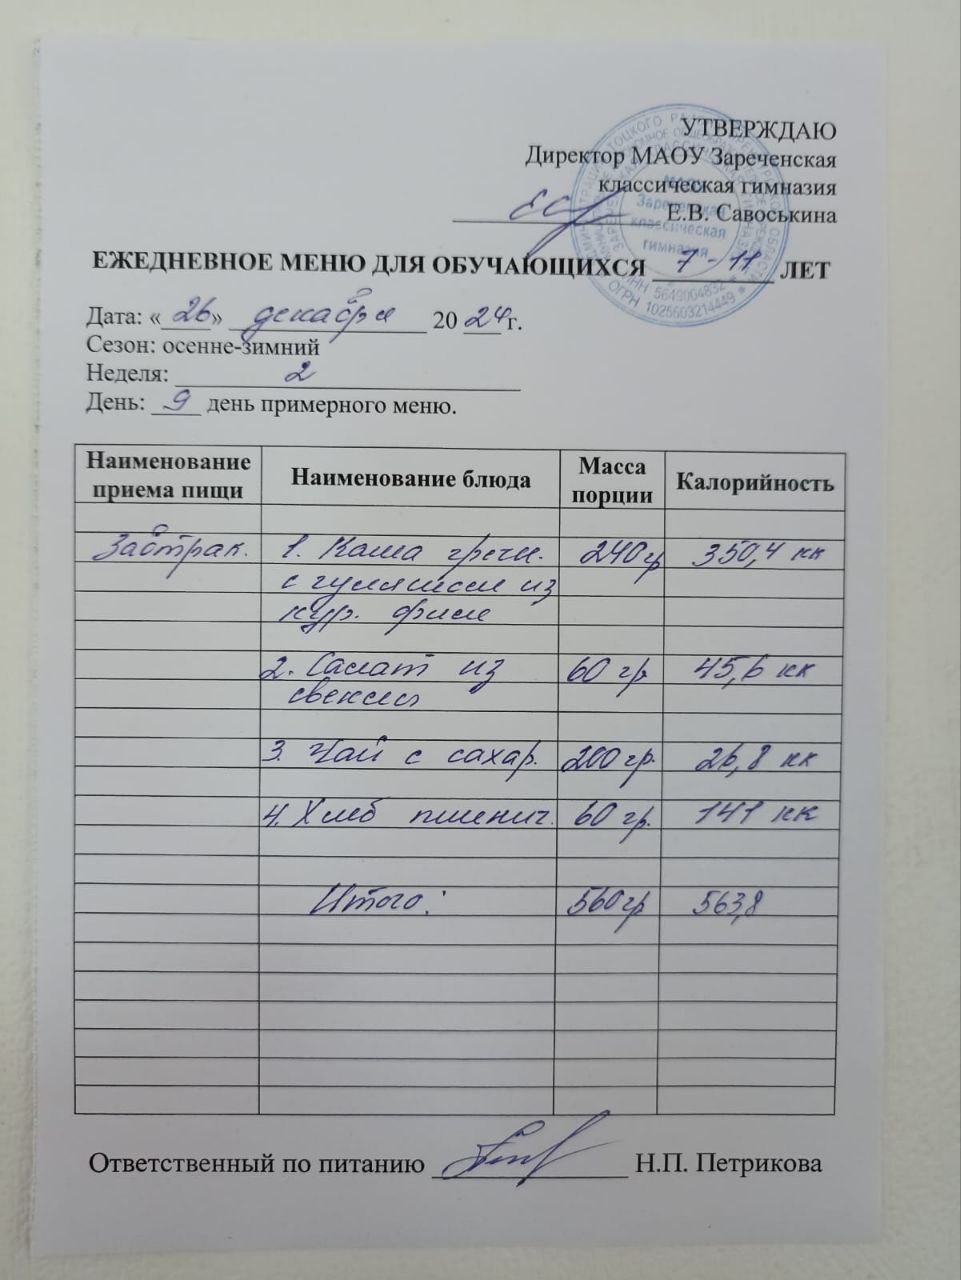 УТВЕРЖДАЮ
Директор МАОУ Зареченская
классическая гимназия
Е.В. Савоськина
МАОУ
Зареченская
классическая
гимназия
ИНН 5649004832
ОГРН 1025603214449
ЕЖЕДНЕВНОЕ МЕНЮ ДЛЯ ОБУЧАЮЩИХСЯ 7-11 ЛЕТ
Дата: «26» декабря 2024г.
Сезон: осенне-зимний
Неделя: 2
День: 9 день примерного меню.
Наименование приема пищи Наименование блюда Масса порции Калорийность
Завтрак. 1. Каша гречн. 240гр 350,4 кк
с гуляшом из
кур. филе
2. Салат из 60 гр 45,6 кк
свеклы
3. Чай с сахар. 200 гр. 26,8 кк
4. Хлеб пшенич. 60 гр. 141 кк
Итого: 560гр 563,8
Ответственный по питанию Н.П. Петрикова